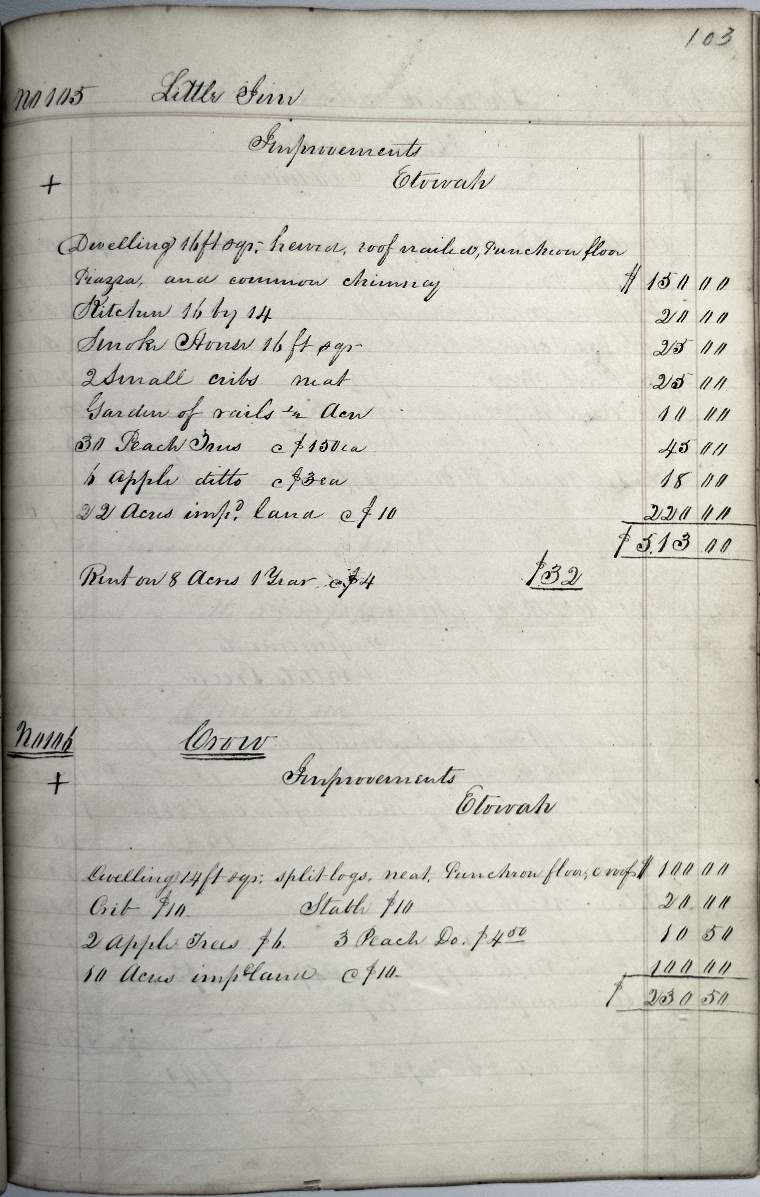 103
No 105 Little Jim
Improvements
+ Etowah
Dwelling 16 ft sqr, hewed, roof nailed, Puncheon floor
Piazza, and common chimney $ 150 00
Kitchen 16 by 14 20 00
Smoke House 16 ft sqr 25 00
2 Small cribs neat 25 00
Garden of rails ½ Acre 10 00
30 Peach Trees @ $1 50 ea 45 00
6 Apple ditto @ $3 ea 18 00
22 Acres imp.d land @ $10 220 00
$ 513 00
Rent on 8 Acres 1 Year @ $4 $32
No 106 Crow
Improvements
+ Etowah
Dwelling 14 ft sqr, split logs, neat, Puncheon floor, c roof $ 100 00
Crib $10. Stable $10 20 00
2 Apple Trees $6. 3 Peach Do. $4 50 10 50
10 Acres imp.d land @ $10. 100 00
$ 230 50